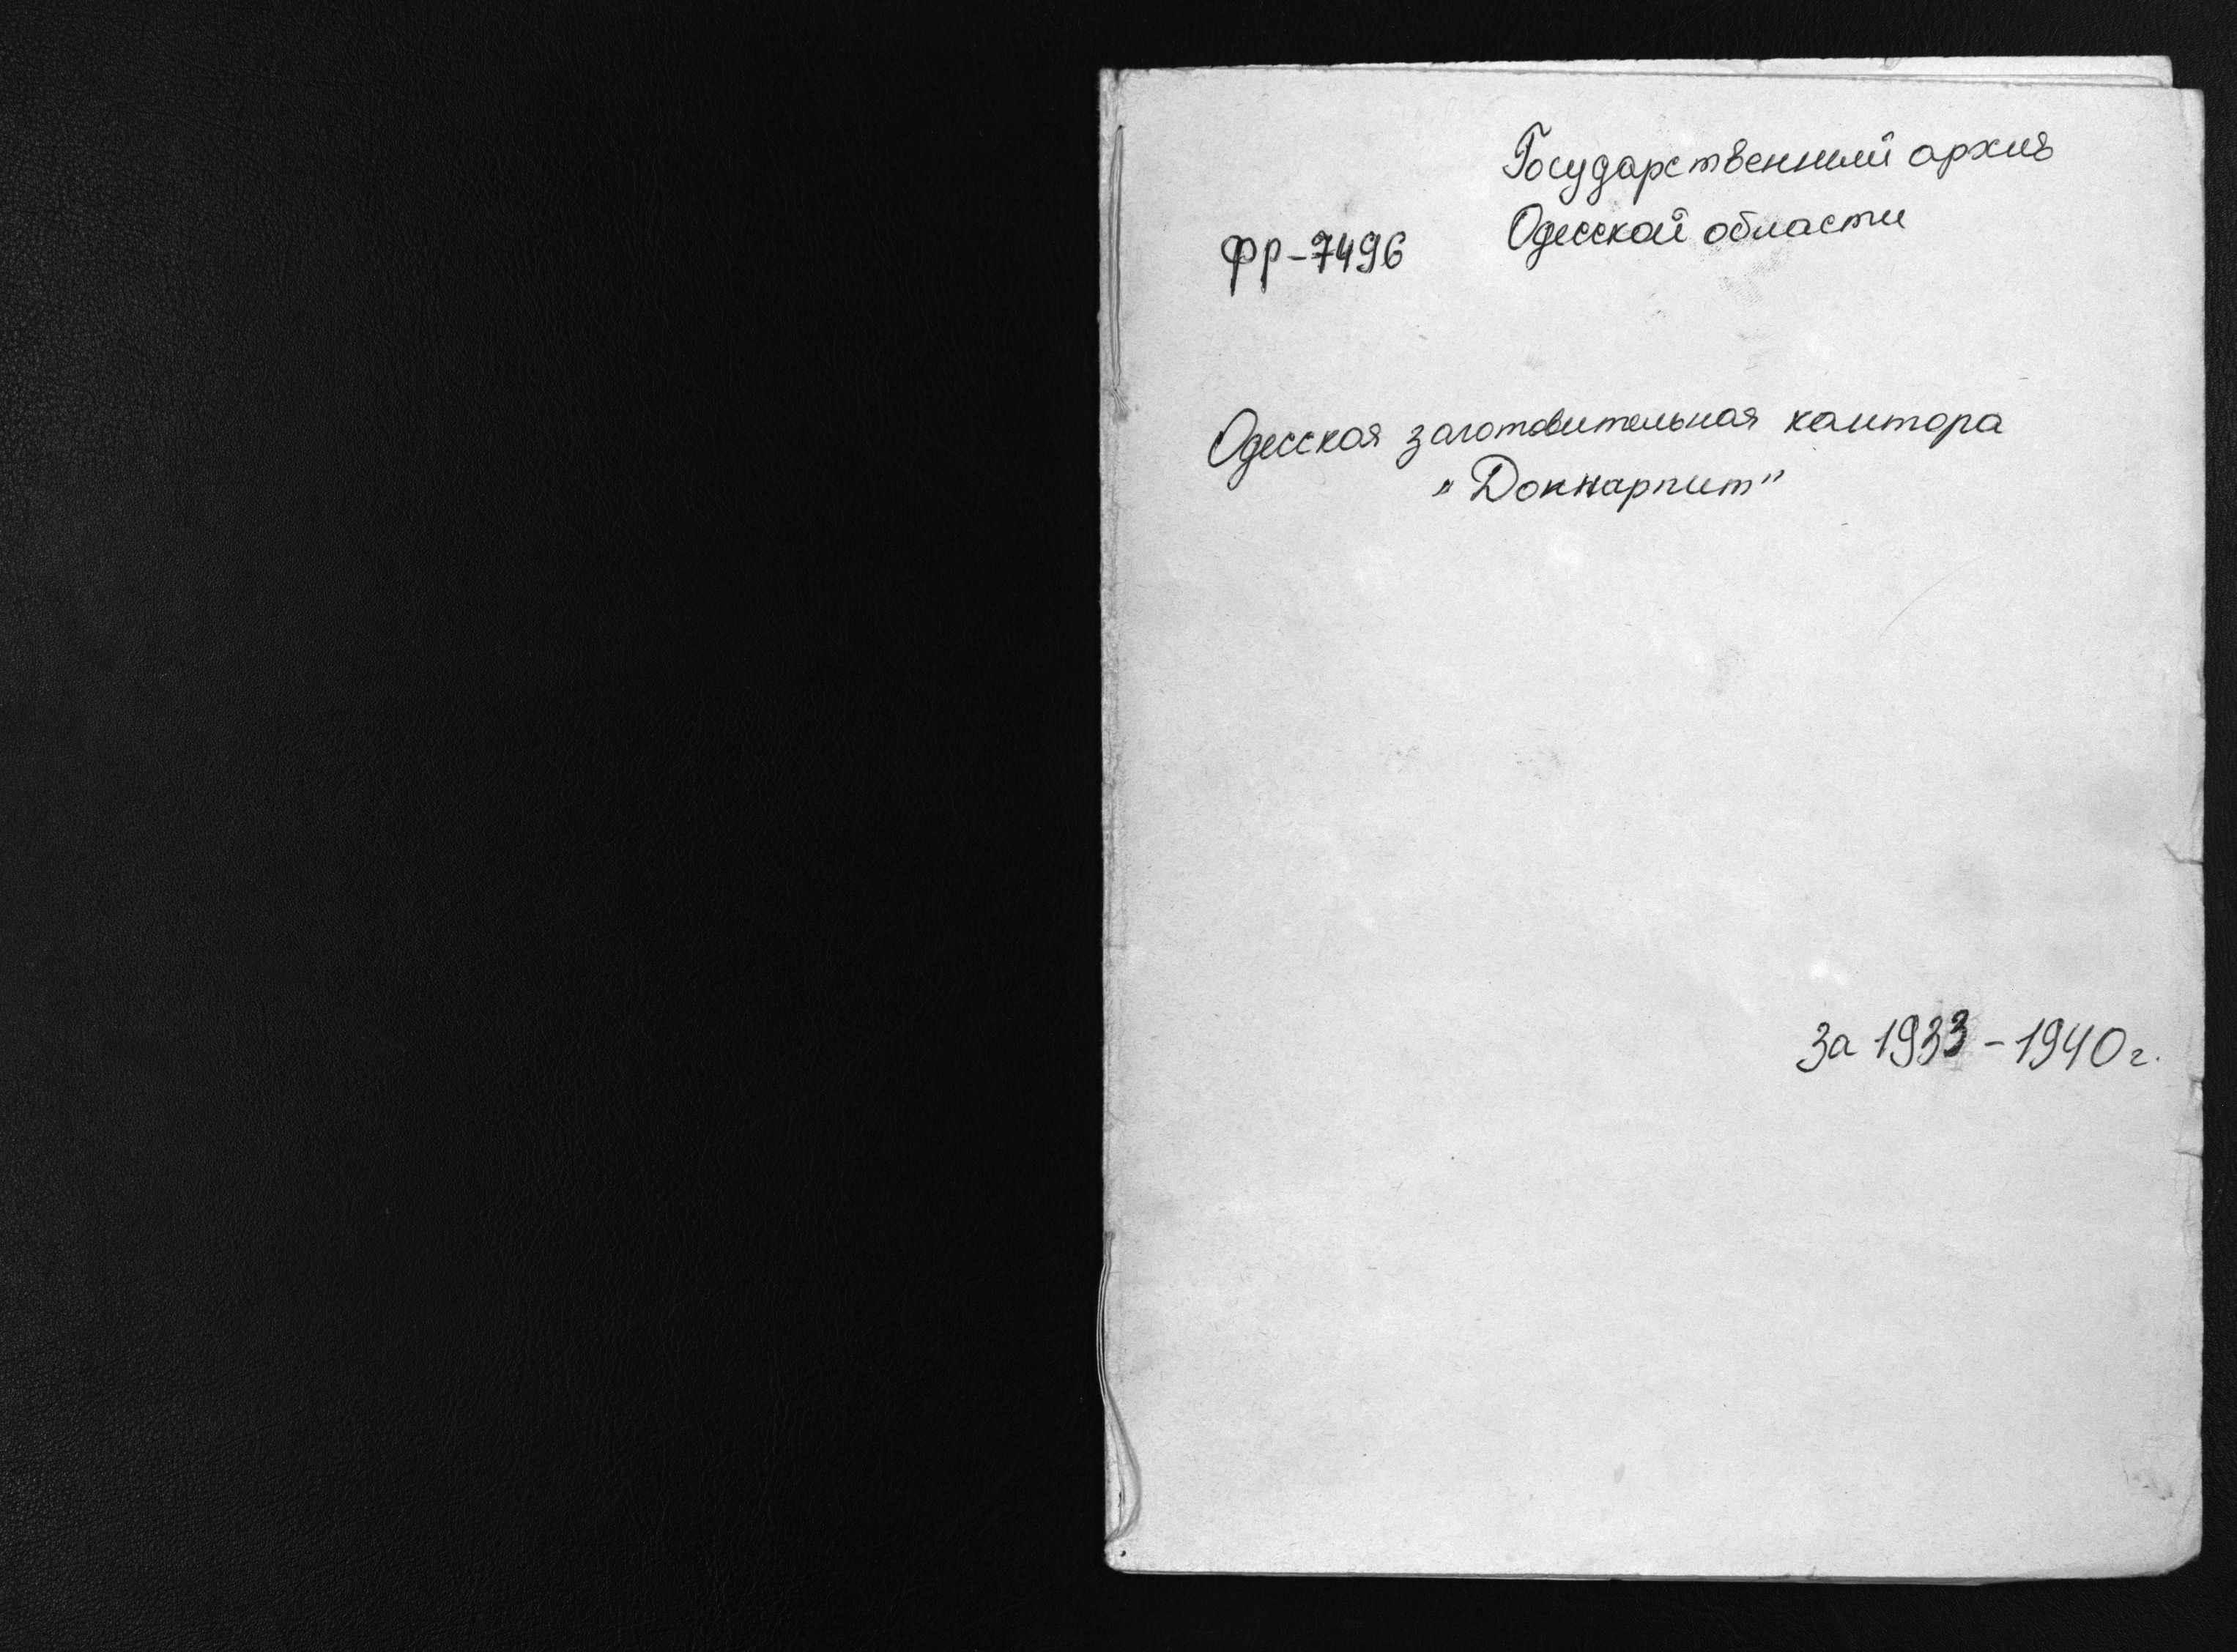 Государственный архив
Одесской области
ФР-7496
Одесская заготовительная контора
"Доннарпит"
За 1933-1940 г.